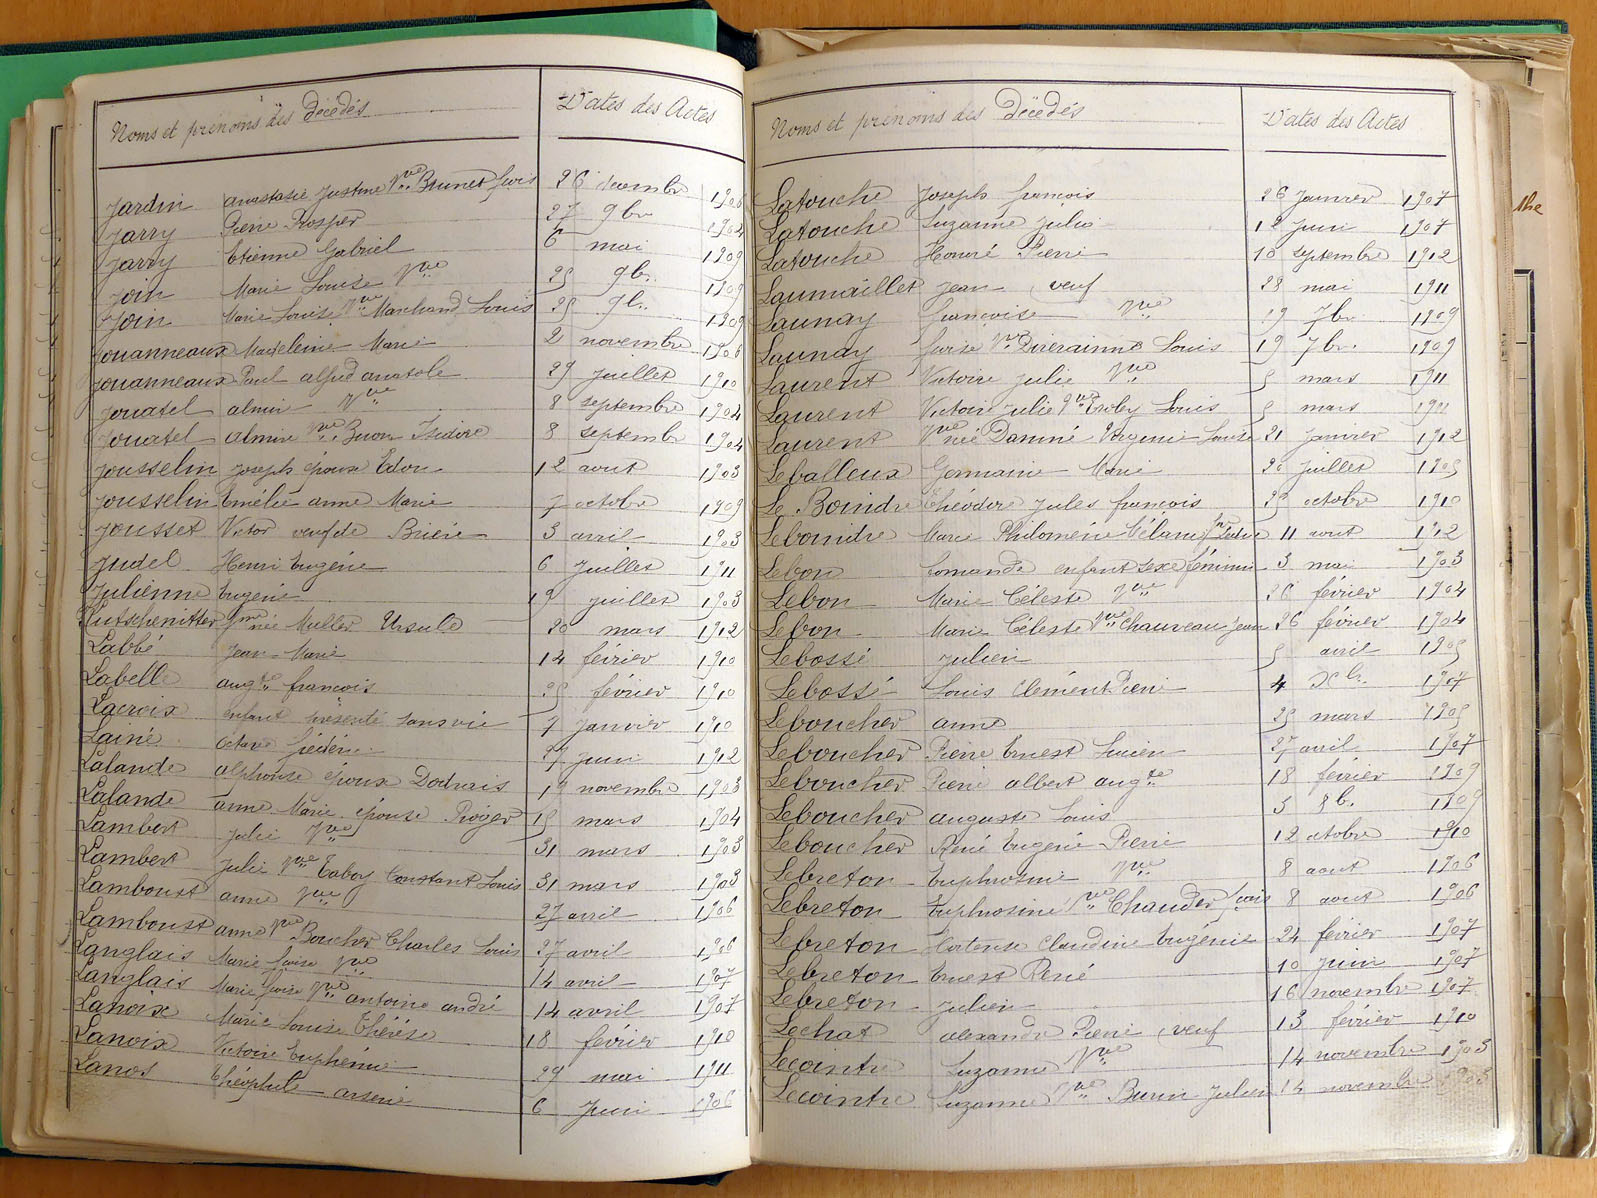 Noms et prénoms des Décédés Dates des Actes
Jardin anastasie Justine Vve Brunet 26 décembre 1906
Jarry Pierre Prosper 27 9bre 1904
Jarry Etienne Gabriel 6 mai 1909
Join Marie Louise Vve 25 9bre 1909
Join Marie Louise Vve Marchand Louis 25 9bre 1909
Jouanneaux Madeleine Marie 2 novembre 1906
Jouanneaux Paul alfred anatole 29 juillet 1910
Jouatel almire Vve 8 septembre 1904
Jouatel almire Vve Buon Isidore 8 septembre 1904
Jousselin Joseph époux Edon 12 aout 1903
Jousselin Emélie anne Marie 7 octobre 1909
Jousset Victor veuf de Brière 3 avril 1903
Judel Henri Eugène 6 Juillet 1911
Julienne Eugène 19 juillet 1903
née Muller Ursule 20 mars 1912
Labbé Jean Marie 14 février 1910
Labelle augte françois 25 février 1910
Lacroix enfant présenté sans vie 7 Janvier 1910
Lainé octave frédéric 27 Juin 1912
Lalande alphonse époux 19 novembre 1903
Lalande anne Marie épouse Royer 15 mars 1904
Lambert Julie Vve 31 mars 1903
Lambert Julie Vve Taboy Constant Louis 31 mars 1903
Lamboust anne Vve 27 avril 1906
Lamboust anne Vve Boucher Charles Louis 27 avril 1906
Langlais Marie Vve 14 avril 1907
Langlais Marie Vve antoine andré 14 avril 1907
Lanoix Marie Louise Thérèse 18 février 1910
Lanoix Victoire Euphémie 29 mai 1911
Lanos Théophile arsène 6 Juin 1906
Noms et prénoms des Décédés Dates des Actes
Latouche Joseph françois 26 Janvier 1907
Latouche Suzanne Julie 12 Juin 1907
Latouche Honoré Pierre 10 septembre 1912
Laumaillet Jean veuf 28 mai 1911
Launay françoise Vve 19 7bre 1909
Launay Vve Louis 19 7bre 1909
Laurent Victoire Julie Vve 5 mars 1911
Laurent Victoire Julie Vve Louis 5 mars 1911
Laurent Vve née Daminé Virginie Louise 21 Janvier 1912
Leballeux Germaine Marie 20 juillet 1905
Le Boindre Théodore Jules françois 25 octobre 1910
Leboindre Marie Philomène Mélanie 11 aout 1912
Lebon enfant sexe féminin 3 mai 1903
Lebon Marie Céleste Vve 26 février 1904
Lebon Marie Céleste Vve Chauveau Jean 26 février 1904
Lebossé Julien 5 avril 1905
Lebossé Louis Clément Pierre 4 Xbre 1907
Leboucher anne 25 mars 1905
Leboucher Pierre Ernest Lucien 27 avril 1907
Leboucher Pierre albert augte 18 février 1909
Leboucher auguste Louis 5 8bre 1909
Leboucher René Eugène Pierre 12 octobre 1910
Lebreton Euphrosine Vve 8 aout 1906
Lebreton Euphrosine Vve 8 aout 1906
Lebreton Hortense Claudine Eugénie 24 février 1907
Lebreton Ernest René 10 juin 1907
Lebreton Julien 16 novembre 1907
Lechat alexandre Pierre veuf 13 février 1910
Lecointre Suzanne Vve 14 novembre 1903
Lecointre Suzanne Vve Burin Julien 14 novembre 1903